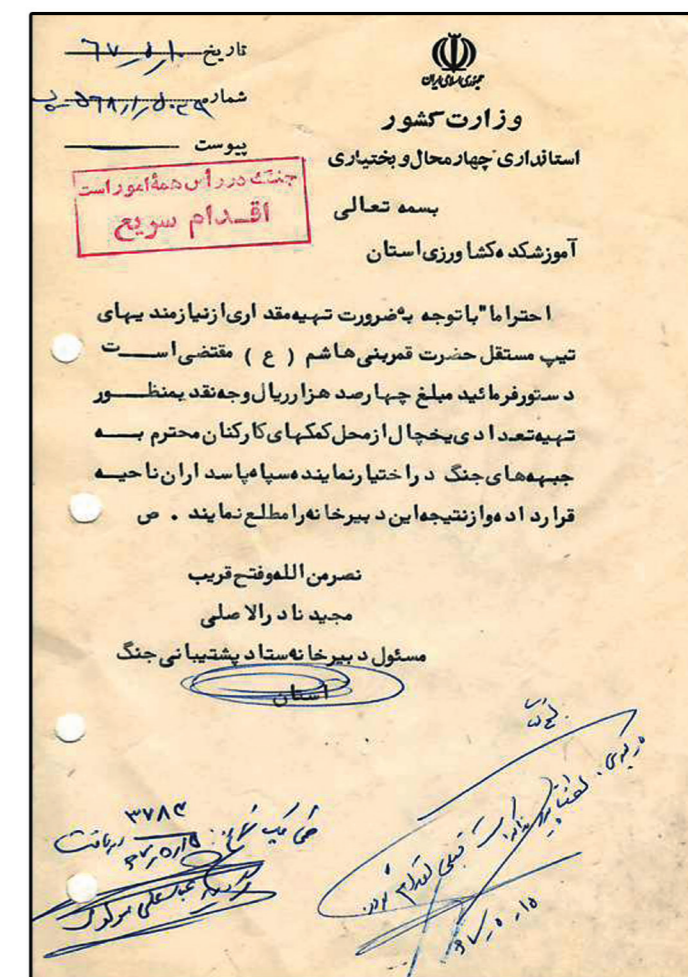 جمهوری اسلامی ایران
وزارت کشور
استانداری چهارمحال و بختیاری
تاریخ ۶۷/۵/۱۰
شماره
پیوست
جنگ در رأس همهٔ امور است
اقدام سریع
بسمه تعالی
آموزشکده کشاورزی استان
احتراما" با توجه به ضرورت تهیه مقداری از نیازمندیهای
تیپ مستقل حضرت قمربنی هاشم ( ع ) مقتضی است
دستور فرمائید مبلغ چهارصد هزار ریال وجه نقد بمنظور
تهیه تعدادی یخچال از محل کمکهای کارکنان محترم به
جبهه های جنگ در اختیار نماینده سپاه پاسداران ناحیه
قرار داده و از نتیجه این دبیرخانه را مطلع نمایند . ص
نصرمن الله وفتح قریب
مجید نادرالاصلی
مسئول دبیرخانه ستاد پشتیبانی جنگ
استان
۳۷۸۳
۶۷/۵/۱۵
قبلی اقدام
۶۷/۵/۱۵